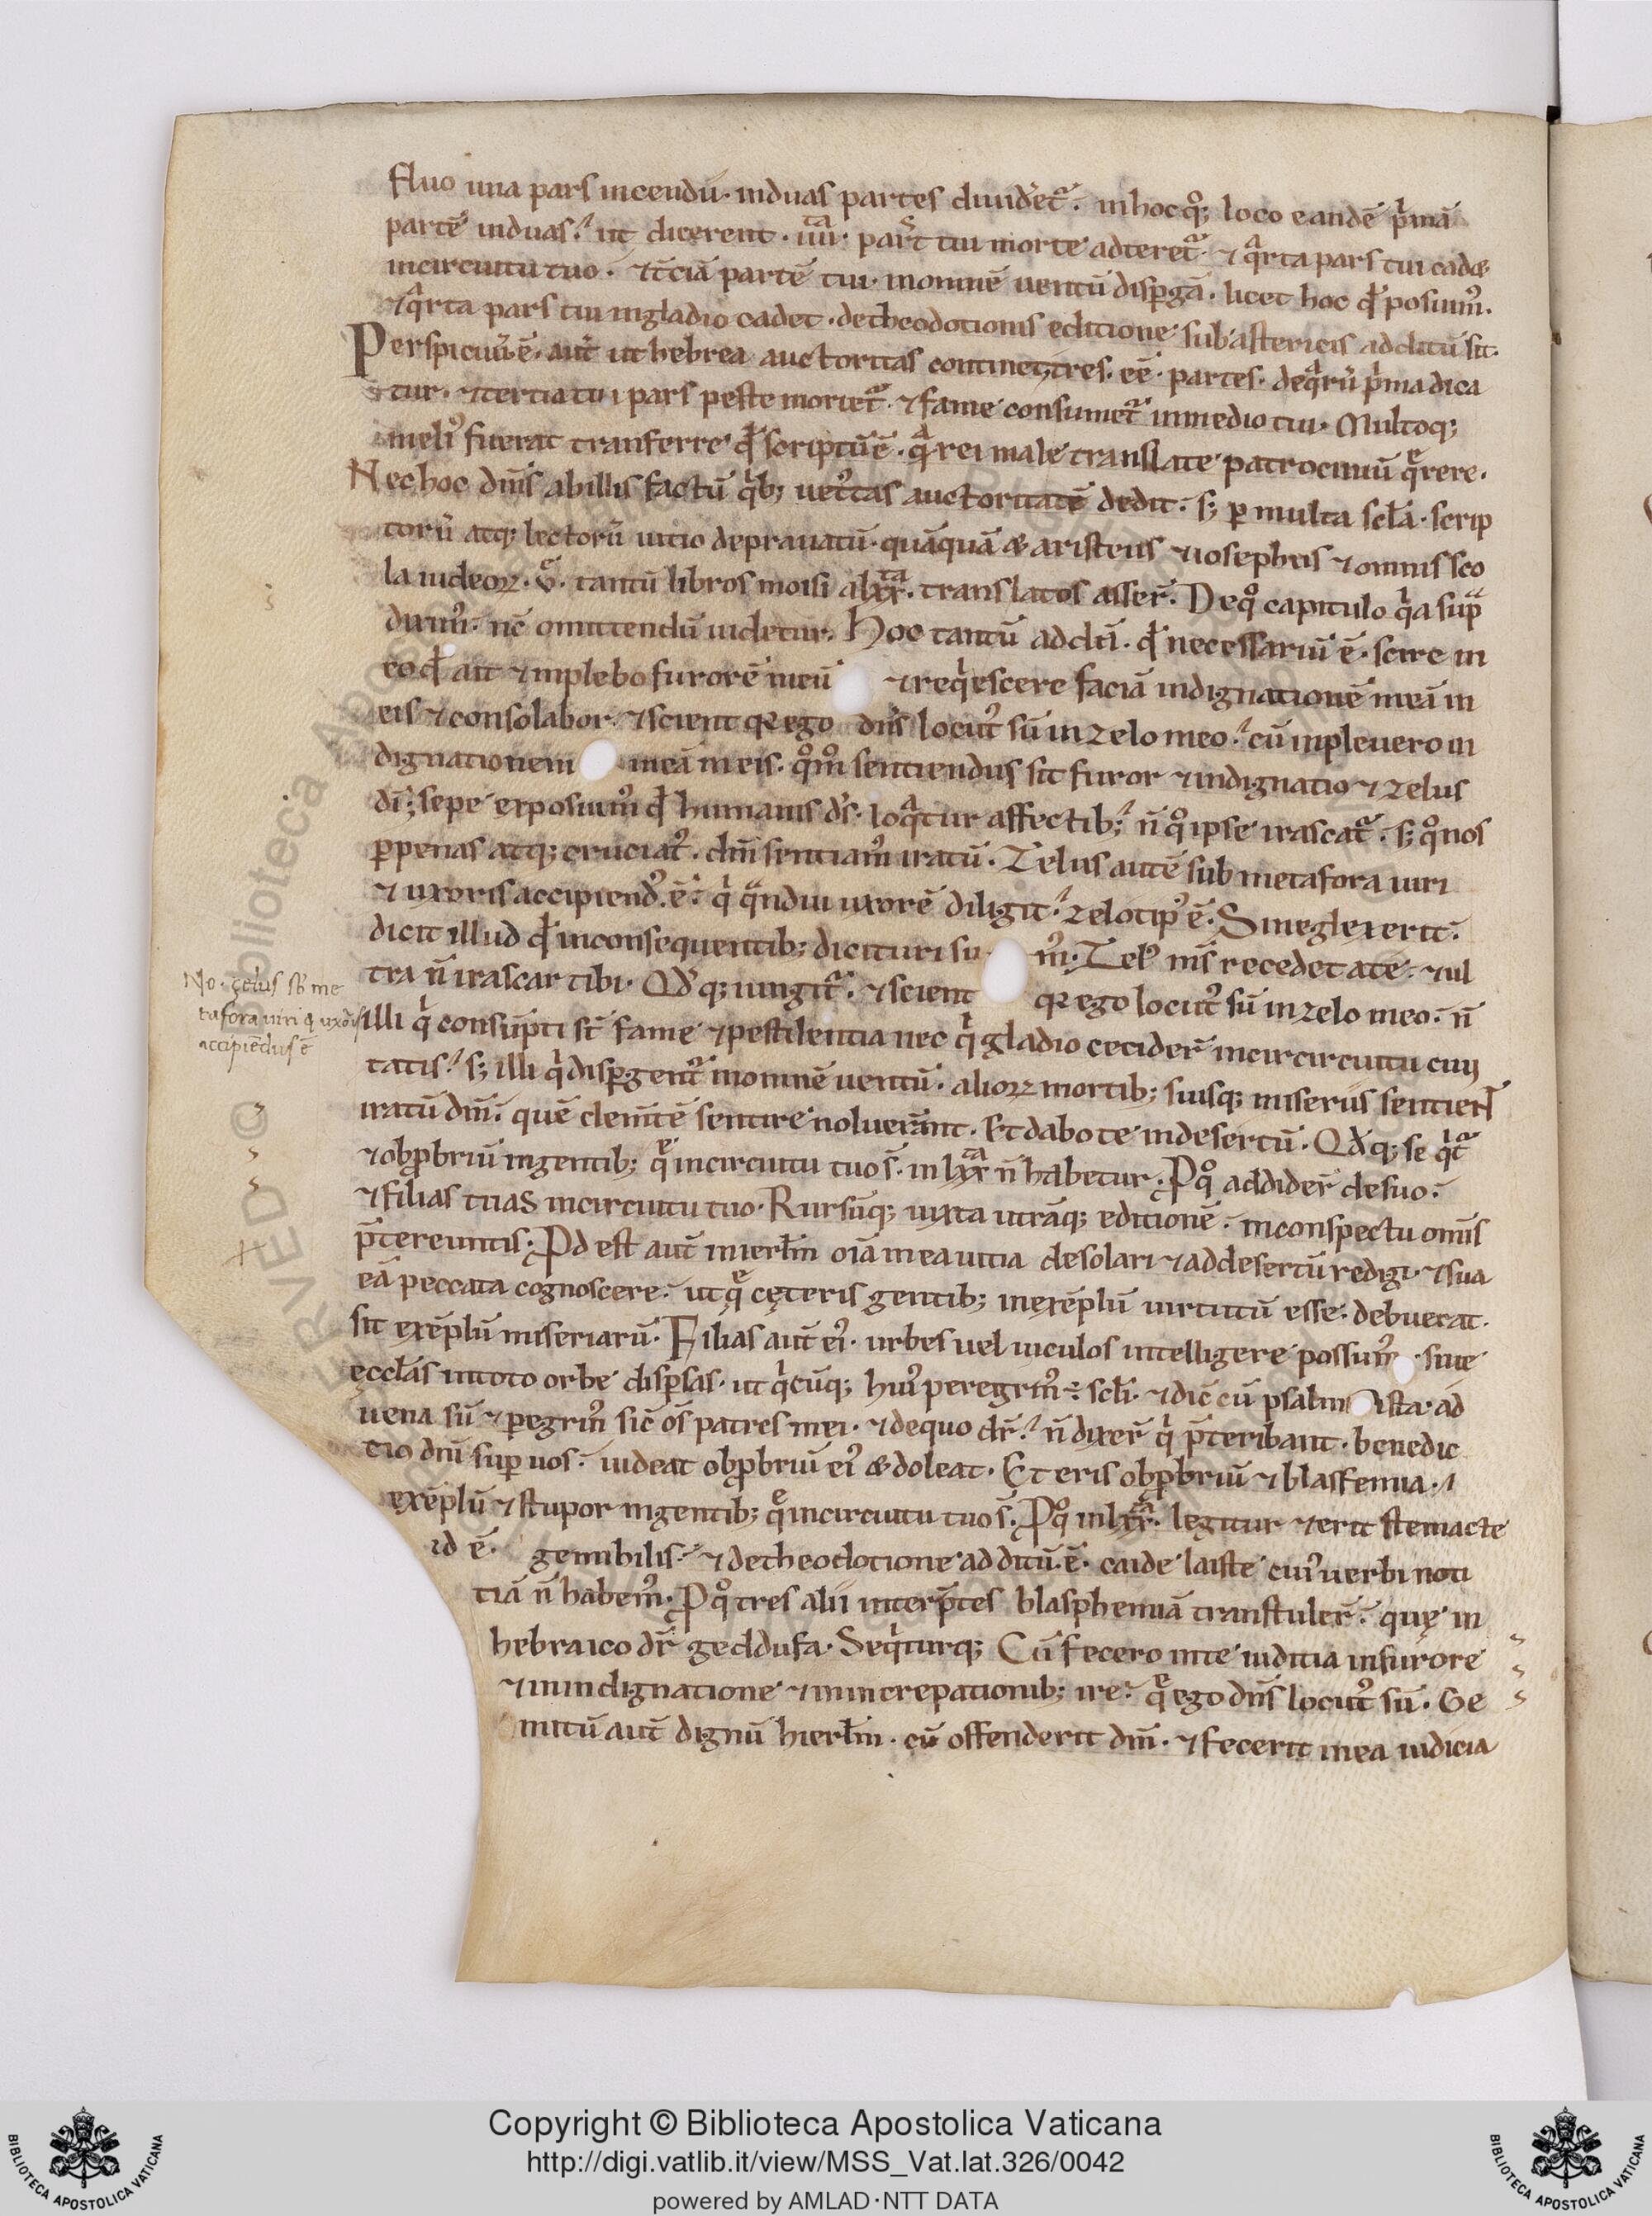 fluo una pars incendii· induas partes diuideret᷑. inhocq̊; loco eandē p̍mā
partē induas· ut dicerent· iiii^ta· pars tui morte adteret᷑· ⁊ q̍rta pars tui cadæ
incircuitu tuo. ⁊t̄ciā partē tui· inomnē uentū disꝑgā. licet hoc qđ posuim᷒.
⁊q̍rta pars tui ingladio cadet· detheodotionis editione sub astericis additū sit.
Perspicuū.ē. aut̄ ut hebrea auctoritas continet; tres. eē· partes· deq̍rū p̍ma dica
tur. ⁊tertia tui pars peste moriet᷑· ⁊fame consumet᷑ inmedio tui· Multoq;
meli᷒ fuerat tranferre qđ scriptū ē· q̍ rei male translate patrociniū q̄rere.
Nec hoc dīnis abillis factū q̍b; uet᷒tas auctoritatē dedit. s; ꝑ multa sc̄la· scrip
torū atq; lectorū uitio deprauatū· quāquā & aristeus ⁊iosephus ⁊omnis sco
la iudeoꝝ .v. tantū libros moisi alxx^ta. translatos asser̄. Deq̊ capitulo q̍a sup̄
dixim᷒· nc̄ omittendū uidetur. Hoc tantū addā. qđ necessariū ē. scire in
eoqđ ait ⁊inplebo furorē meū ⁊req̍escere faciā indignationē meā in
eis ⁊consolabor. ⁊scient qꝛ ego dn̄s locut᷒ sū in zelo meo· cū inpleuero in
dignationem meā in eis. q̊m̊ sentiendus sit furor ⁊indignatio ⁊ zelus
dī; sepe exposuim᷒ qđ humanis dˢ. loq̍tur affectib; n̄ q̊ ipse irascat᷑. s; q̊ nos
ꝑpenas atq; cruciat᷒. dm̄ sentiam᷒ iratū. Zelus autē sub metafora uiri
⁊ uxoris accipiend᷒.ē. q̍ q̍ndiu uxorē diligit· zelotip᷒ ē. Sineglexerit.
dicit illud qđ inconsequentib; dicituri su m᷒. Zel᷒ m̄s recedet ate. ⁊ ul
tra n̄ irascar tibi. Qđq; iungit᷑. ⁊scient qꝛ ego locut᷒ sū in zelo meo. n̄
illi q̍ consūpti st̄ fame ⁊pestilentia nec q̍ gladio cecider̄ incircircuitu ciui
tatis· s; illi q̍ disꝑgent᷑ inomnē uentū. alioꝝ mortib; suisq; miseriis sentient
iratū dm̄. quē clem̄tē sentire noluerunt. Et dabo te indesertū. Qđq; se q̍t᷑
⁊obꝓbriū ingentib; q̄ incircuitu tuo s̄. in lxx^ta n̄ habetur. Pq̊ addider̄ desuo.
⁊filias tuas incircuitu tuo. Rursūq; iuxta utrāq; editionē. inconspectu omīs
p̄tereuntis. Pd est aut̄ inierlm̄ oīa mea uitia desolari ⁊addesertū redigi· ⁊sua
eā peccata cognoscere. utq̄ cęteris gentib; inexēplū uirtutū esse debuerat.
sit exēplū miseriarū. Filias aut̄ ei᷒. urbes uel uiculos intelligere possum᷒ . siue
ęccłas intoto orbe disꝑsas. ut q̍cūq; hui᷒ peregrin᷒ ÷ scłi. ⁊dic̄ cū psalm ista· ad
uena sū ⁊ ꝑegrin᷒ sic̄ os̄ patres mei. ⁊dequo dr̄· n̄ dixer̄ q̍ p̄teribant. benedic
tio dn̄i suꝑ uos. uideat obꝓbriū ei᷒ & doleat. Et eris obꝓbriū ⁊ blasfemia. ⁊
exēplū ⁊ stupor ingentib; q̄ incircuitu tuo s̄. Pq̊ in lxx^ta. legitur ⁊erit stemacte
id ē. gemibilis. ⁊ detheodotione additū.ē. caide laiste cui᷒ uerbi noti
tiā n̄ habem᷒. Pq̊ tres alii interp̄tes blasphemiā transtuler̄. quę in
hebraico dr̄ geddufa. Seq̍turq; Cū fecero inte iuditia infurore
⁊inindignatione ⁊inincrepationib; ire. q̄ ego dn̄s locut᷒ sū. Ge
mitū aut̄ dignū hierlm̄. cū offenderit dm̄. ⁊ fecerit mea iudicia
No. çelus sb̄ me
tafora uiri ⁊ uxoris
accipiēdus ē
Copyright © Biblioteca Apostolica Vaticana
http://digi.vatlib.it/view/MSS_Vat.lat.326/0042
powered by AMLAD·NTT DATA
BIBLIOTECA APOSTOLICA VATICANA
BIBLIOTECA APOSTOLICA VATICANA